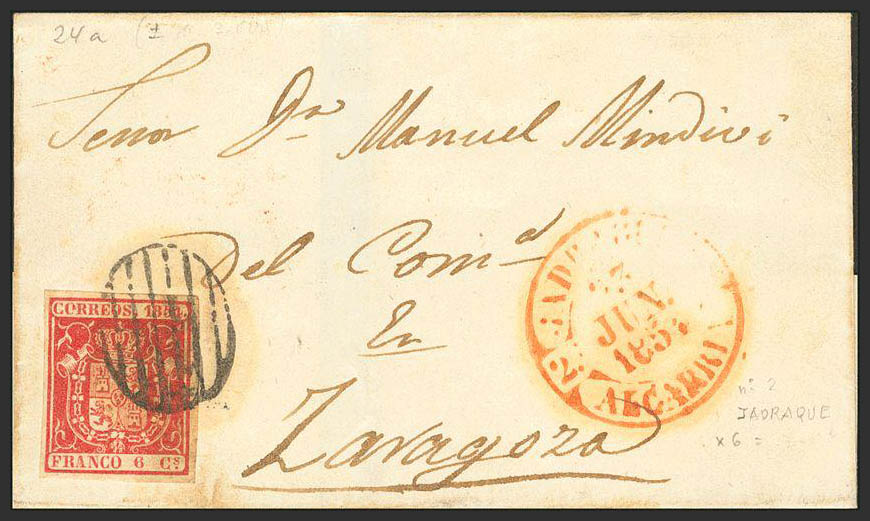 24 a
Señor Dn Manuel Mindivi
Del Comd
En
Zaragoza
CORREOS 185
FRANCO 6 Cs
JADRA
JUN.
185
2
ALCARRIA
nº 2
JADRAQUE
x 6 =